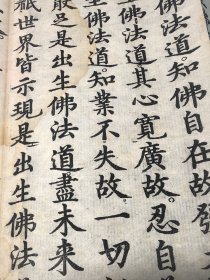 法道。知佛自在故。發
生佛法道其心寬廣故。忍自
佛法道。知業不失故。一切
足是出生佛法道盡未来
秖世界皆示現是出生佛法